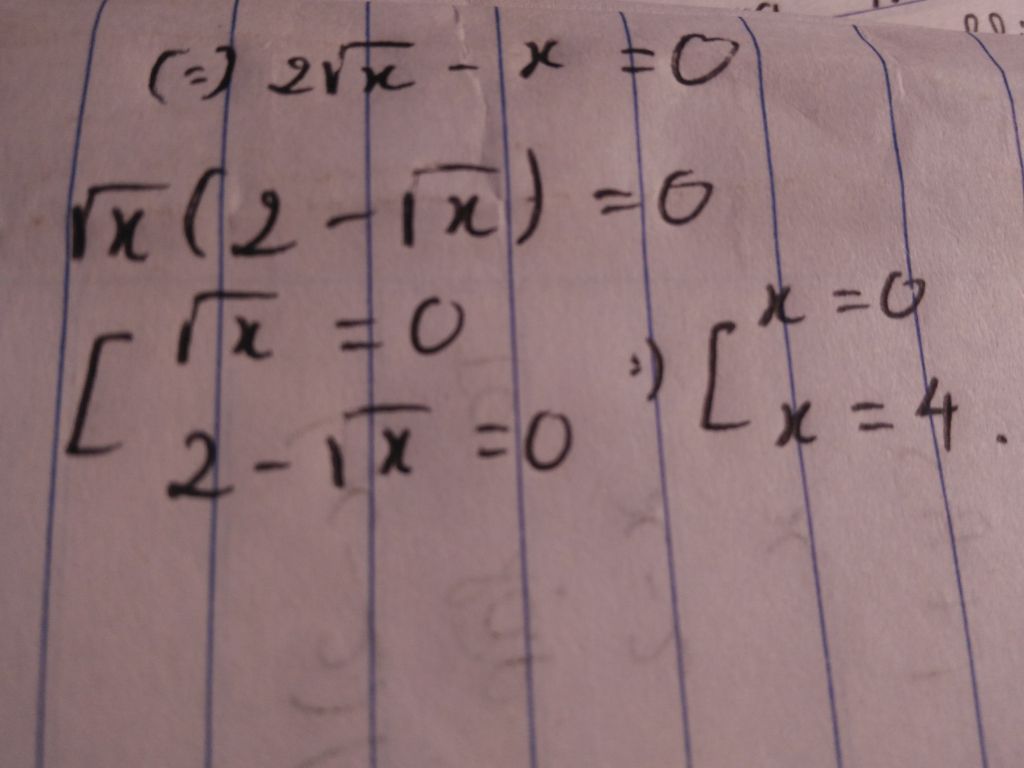 (=) 2√x - x = 0
√x (2 - √x) = 0
[ √x = 0
2 - √x = 0
=) [ x = 0
x = 4 .